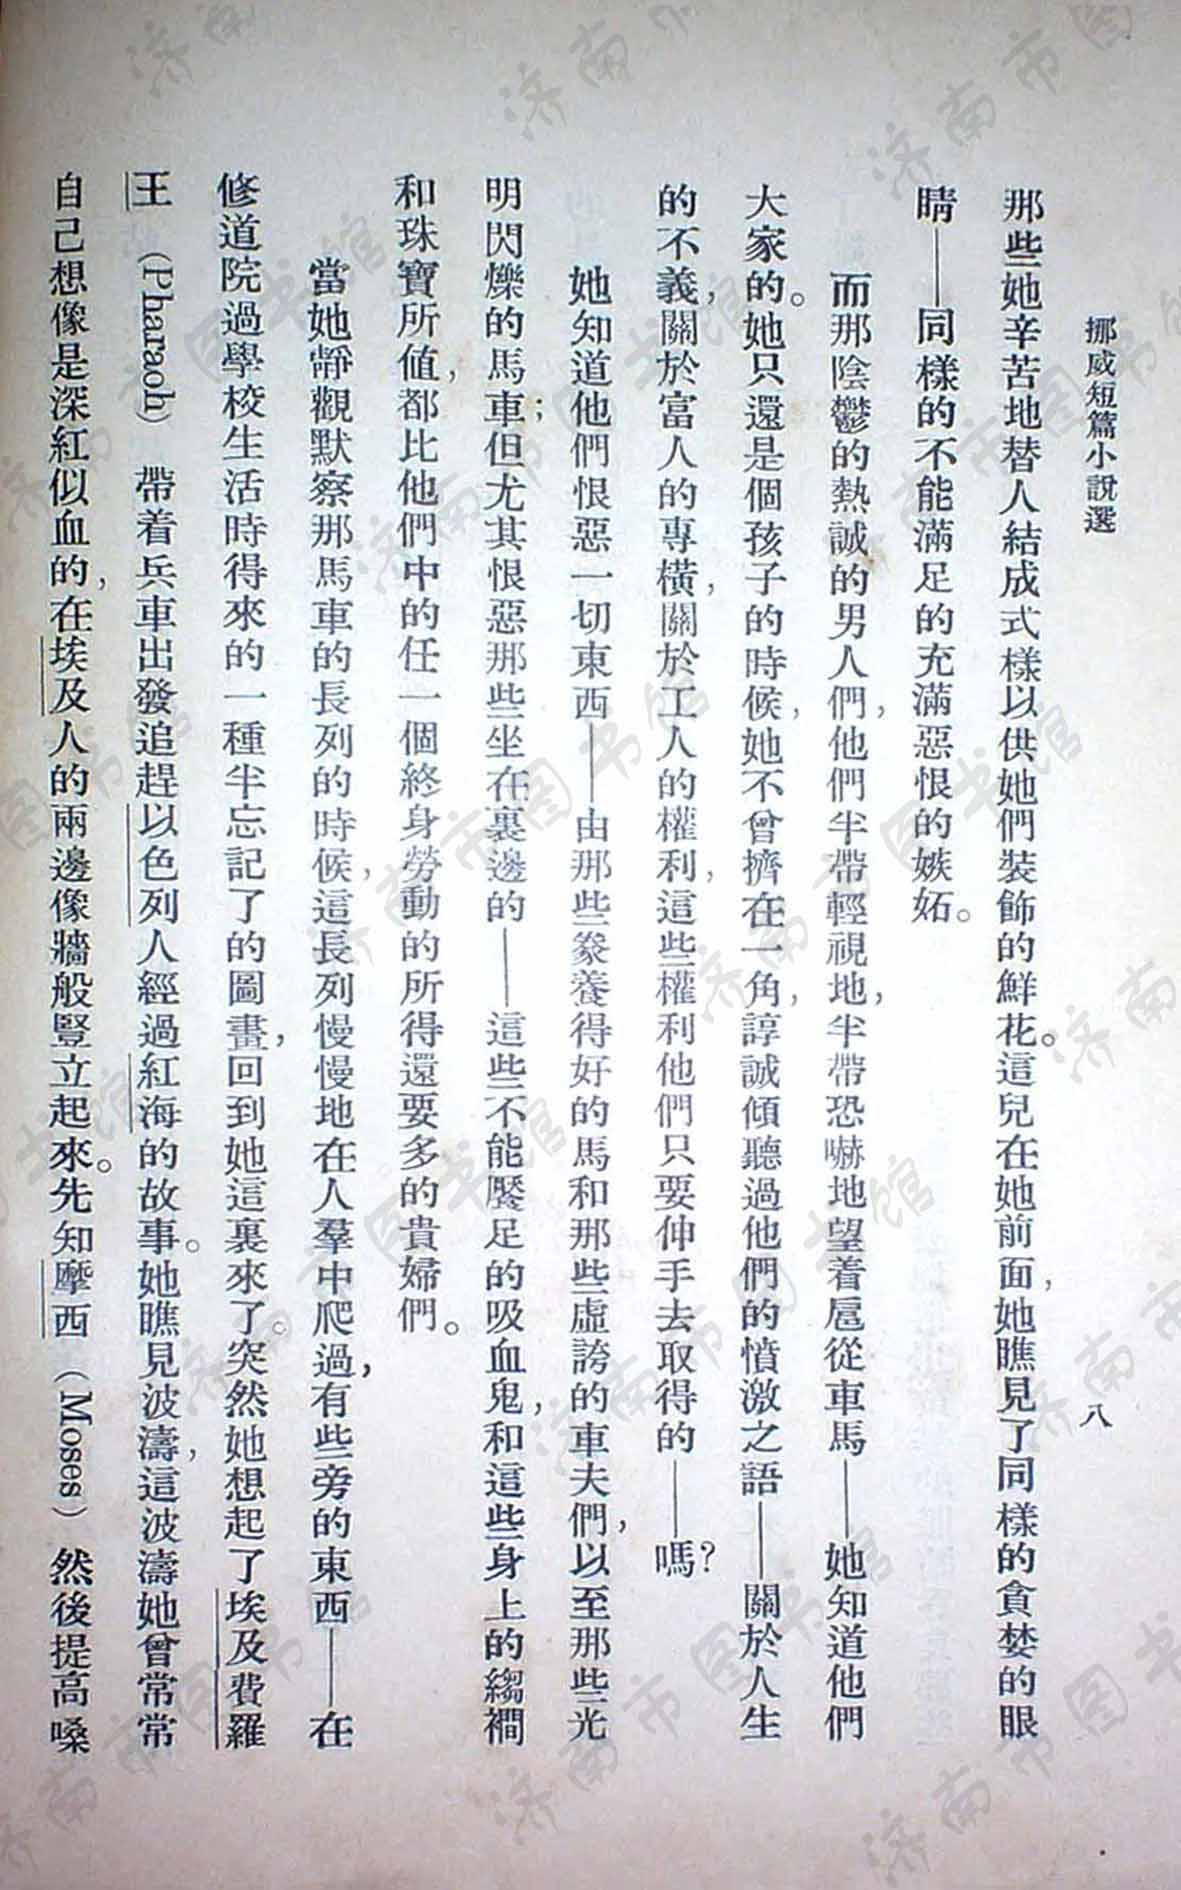 挪威短篇小說選
八
那些她辛苦地替人結成式樣以供她們裝飾的鮮花。這兒在她前面，她瞧見了同樣的貪婪的眼
睛——同樣的不能滿足的充滿惡恨的嫉妬。
而那陰鬱的熱誠的男人們，他們半帶輕視地，半帶恐嚇地望着扈從車馬——她知道他們
大家的。她只還是個孩子的時候，她不曾擠在一角，諄誠傾聽過他們的憤激之語——關於人生
的不義，關於富人的專橫，關於工人的權利，這些權利他們只要伸手去取得的——嗎？
她知道他們恨惡一切東西——由那些豢養得好的馬和那些虛誇的車夫們，以至那些光
明閃爍的馬車；但尤其恨惡那些坐在裏邊的——這些不能饜足的吸血鬼，和這些身上的縐襇
和珠寶所值，都比他們中的任一個終身勞動的所得還要多的貴婦們。
當她靜觀默察那馬車的長列的時候，這長列慢慢地在人羣中爬過，有些旁的東西——在
修道院過學校生活時得來的一種半忘記了的圖畫，回到她這裏來了。突然她想起了埃及費羅
王（Pharaoh）帶着兵車出發追趕以色列人經過紅海的故事。她瞧見波濤，這波濤她曾常常
自己想像是深紅似血的，在埃及人的兩邊像牆般豎立起來。先知摩西（Moses）然後提高嗓
濟南市图书馆